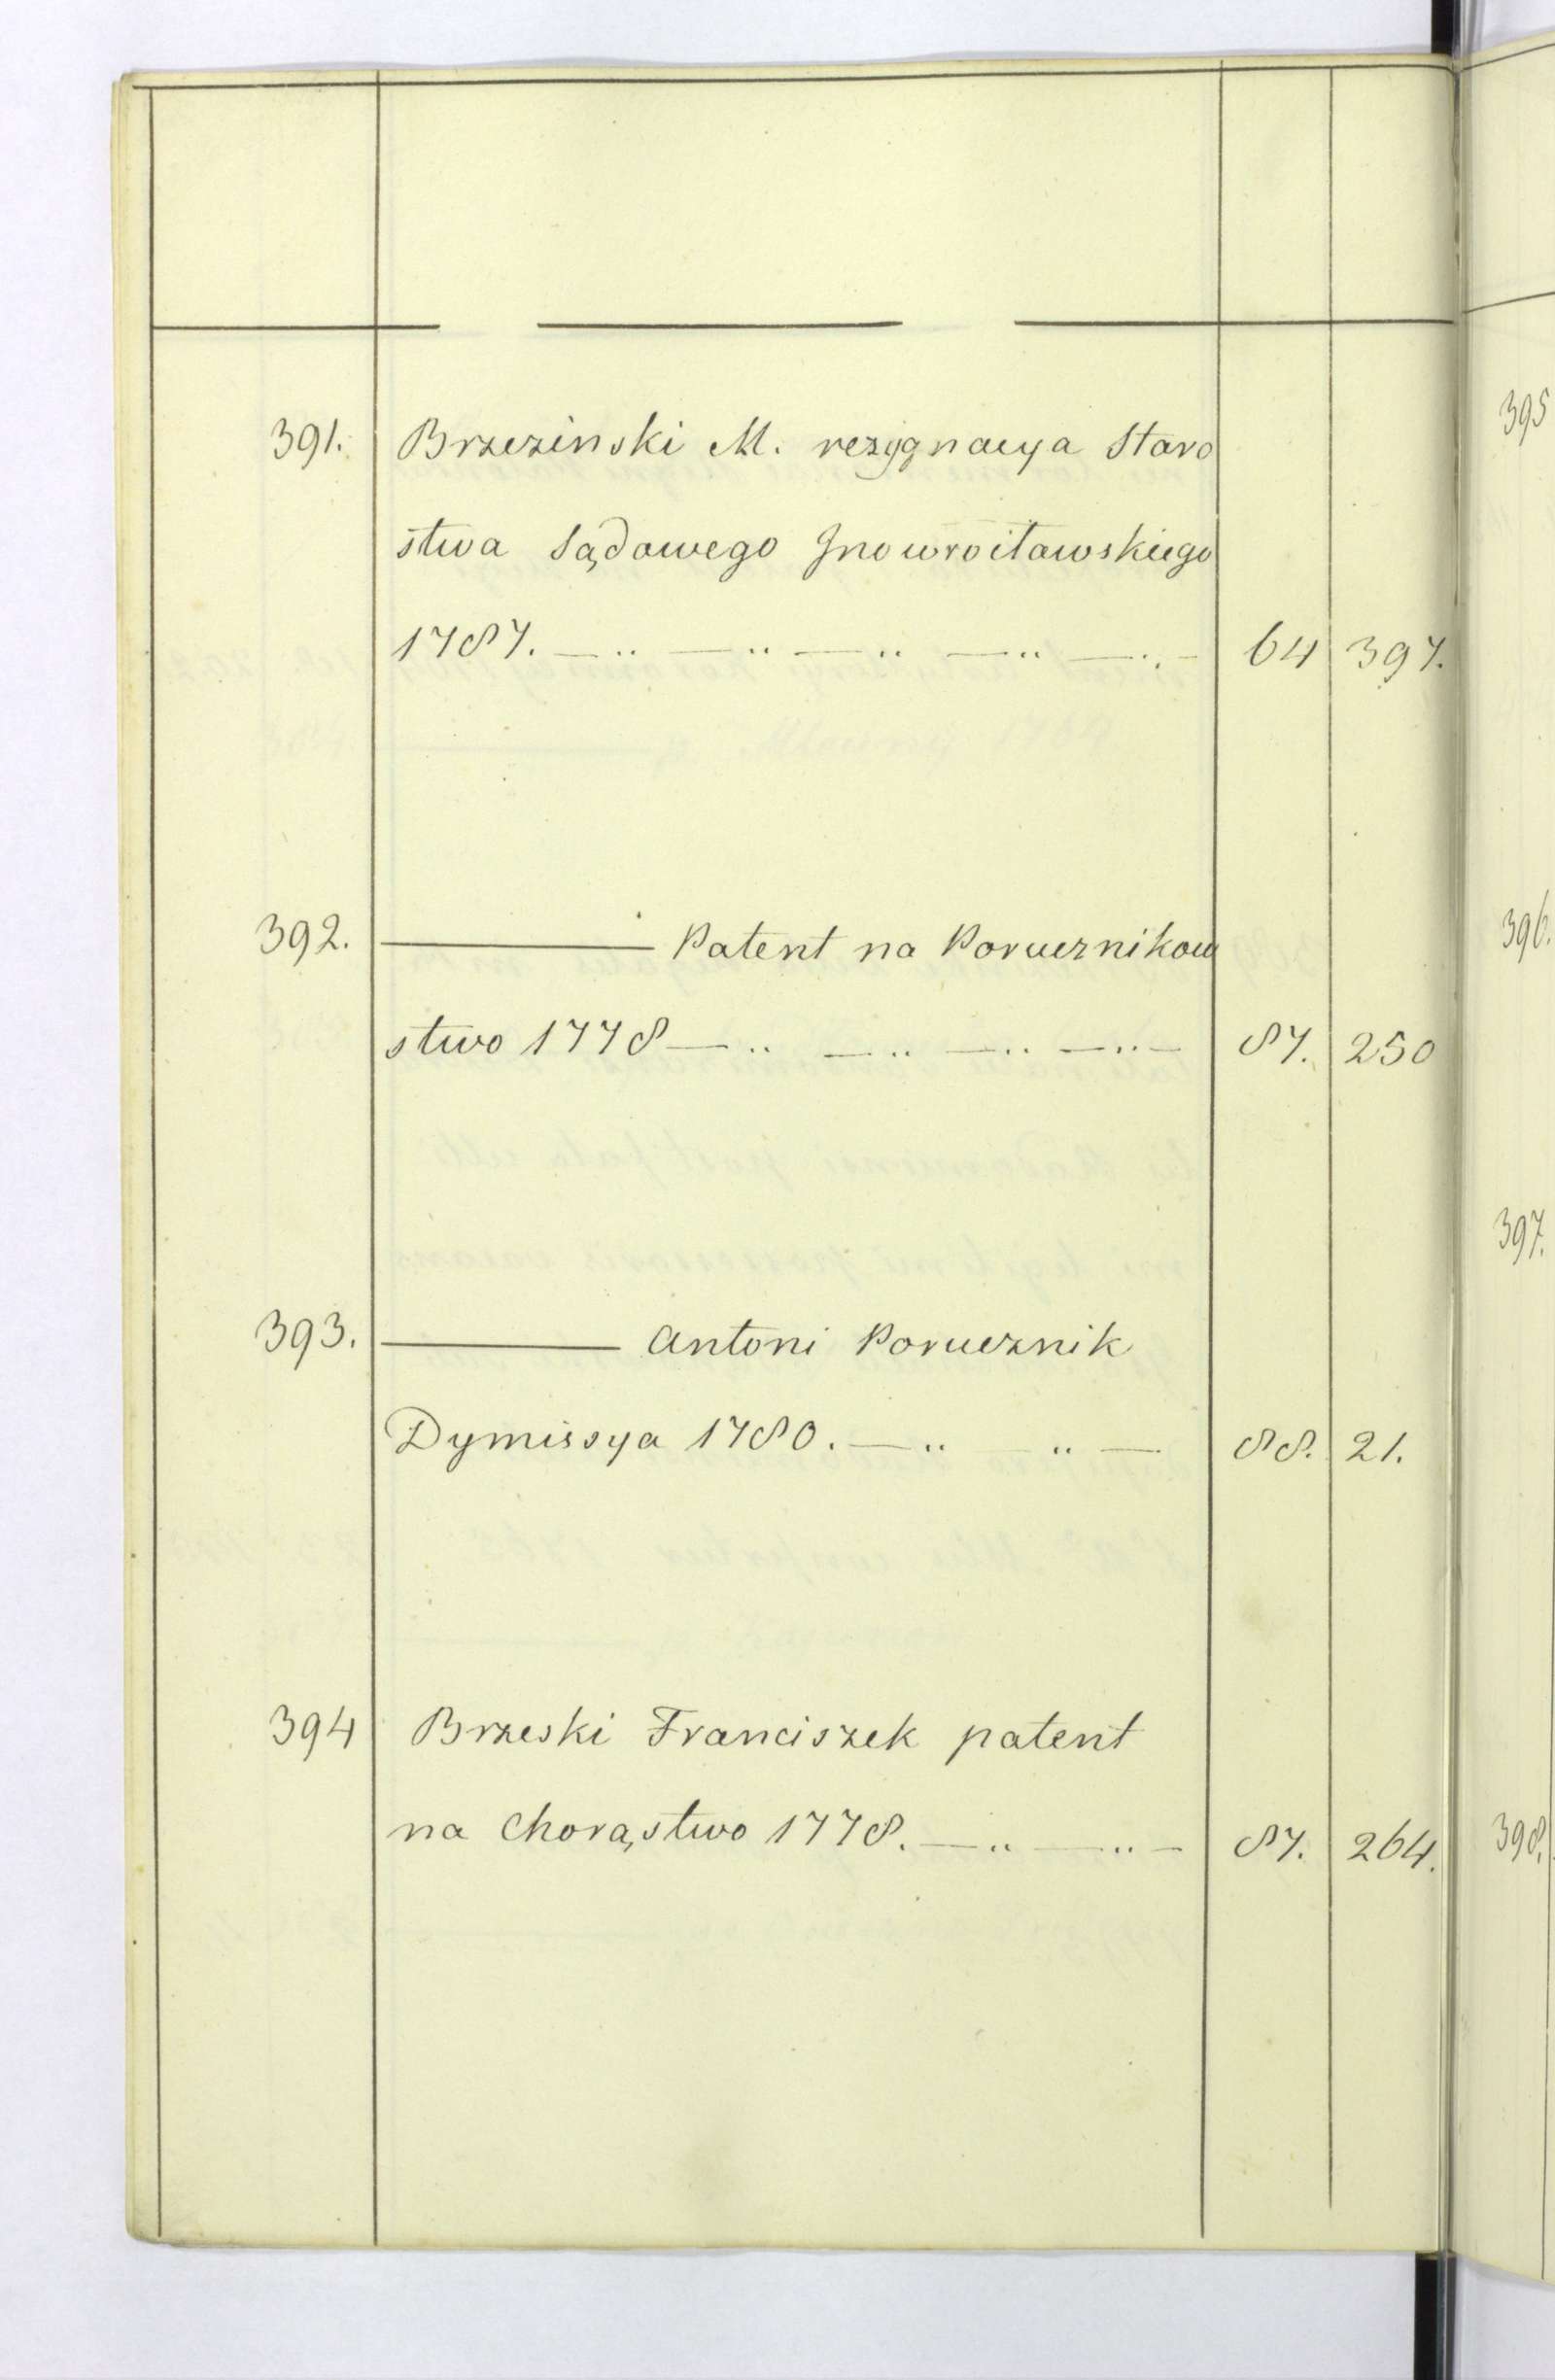 391. Brzezinski M. rezygnacya Staro
stwa Sądowego Jnowrocławskiego
1787. — „ — „ — „ — „ — „ — 64 397.
392. ——— Patent na Porucznikow
stwo 1778 — „ — „ — „ — „ — 87. 250
393. ——— Antoni Porucznik
Dymissya 1780. — „ — „ — 88. 21.
394 Brzeski Franciszek patent
na Chorąstwo 1778. — „ — „ — 87. 264.
395
396.
397.
398.